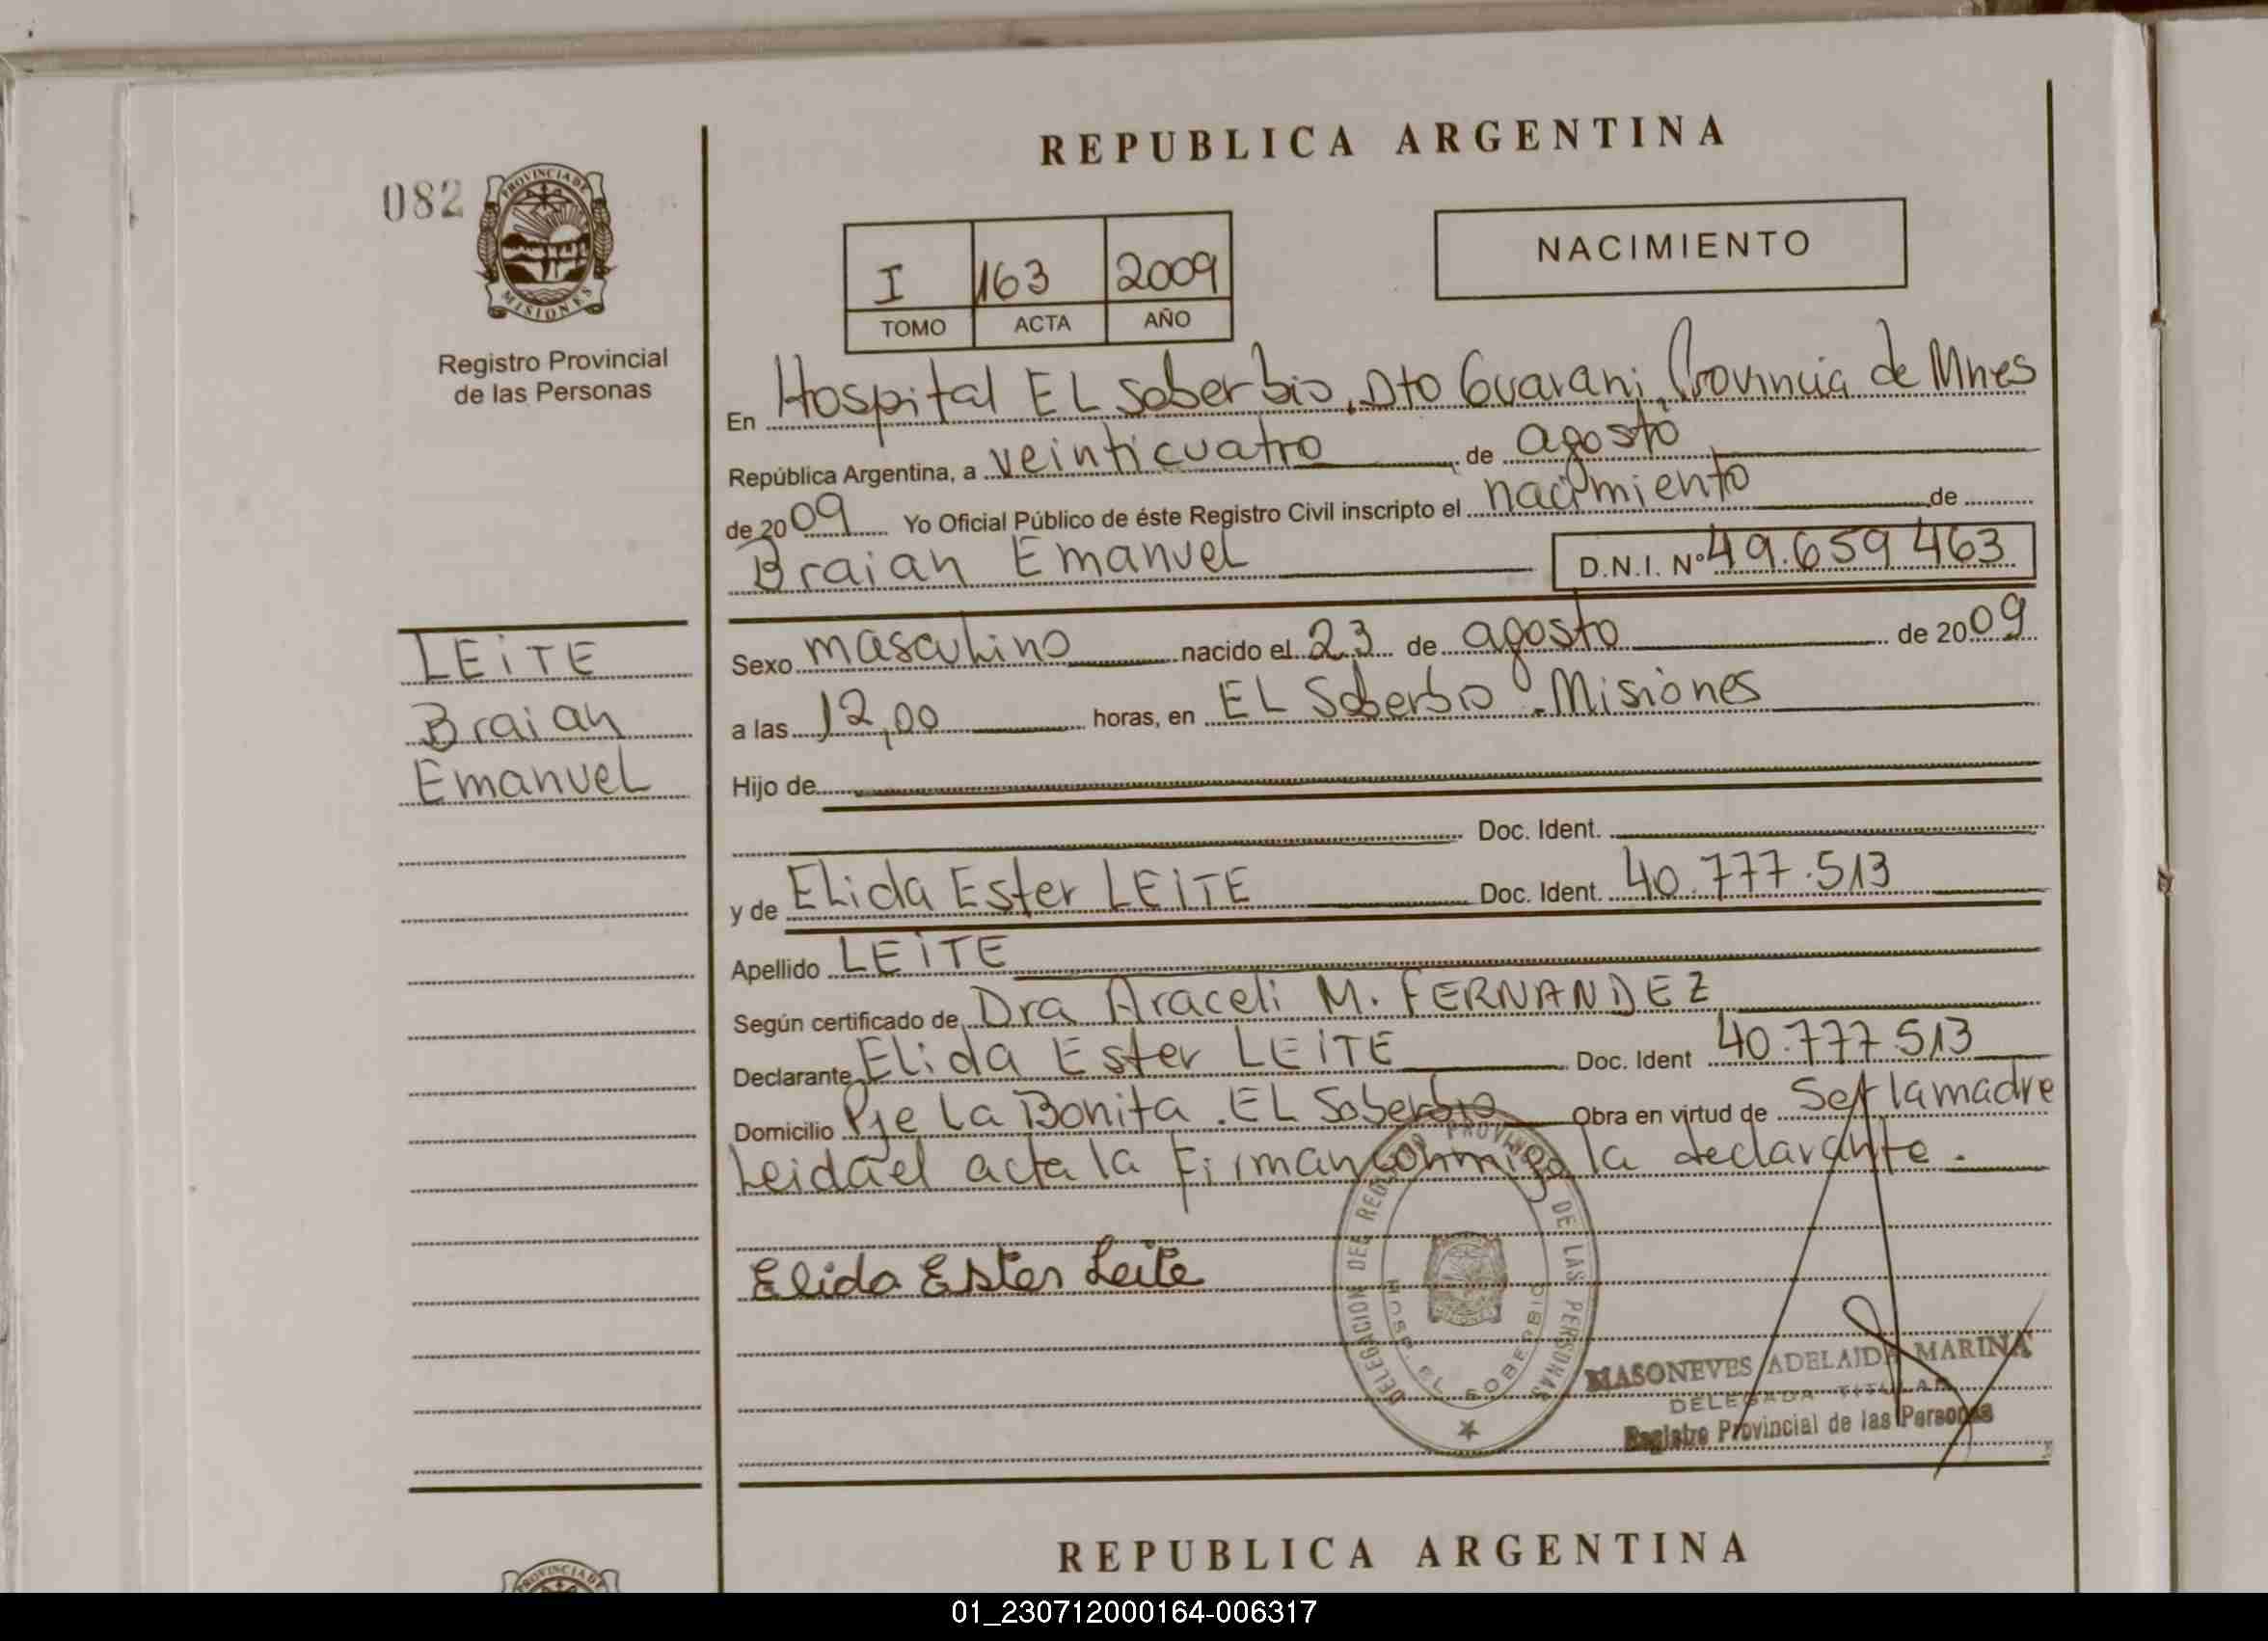 REPUBLICA ARGENTINA
082
PROVINCIA DE
MISIONES
Registro Provincial
de las Personas
I 163 2009
TOMO ACTA AÑO
NACIMIENTO
En Hospital EL Soberbio, Dto Guarani, Provincia de Mnes
República Argentina, a veinticuatro de agosto
de 2009 Yo Oficial Público de éste Registro Civil inscripto el nacimiento de
Braian Emanuel D.N.I. Nº 49.659 463
LEiTE
Braian
EmanueL
Sexo masculino nacido el 23 de agosto de 2009
a las 12,00 horas, en EL Soberbio - Misiones
Hijo de
Doc. Ident.
y de ELida Ester LEiTE Doc. Ident. 40.777.513
Apellido LEiTE
Según certificado de Dra Araceli M. FERNANDEZ
Declarante ELida Ester LEiTE Doc. Ident 40.777.513
Domicilio Pje La Bonita. EL Soberbio Obra en virtud de Ser la madre
Leida el acta la Firman conmigo la declarante.
Elida Ester Leite
DELEGACION DEL REGISTRO PROVINCIAL DE LAS PERSONAS
HOSP. EL SOBERBIO
MASONEVES ADELAIDA MARINA
DELEGADA TITULAR
Registro Provincial de las Personas
REPUBLICA ARGENTINA
PROVINCIA DE
01_230712000164-006317